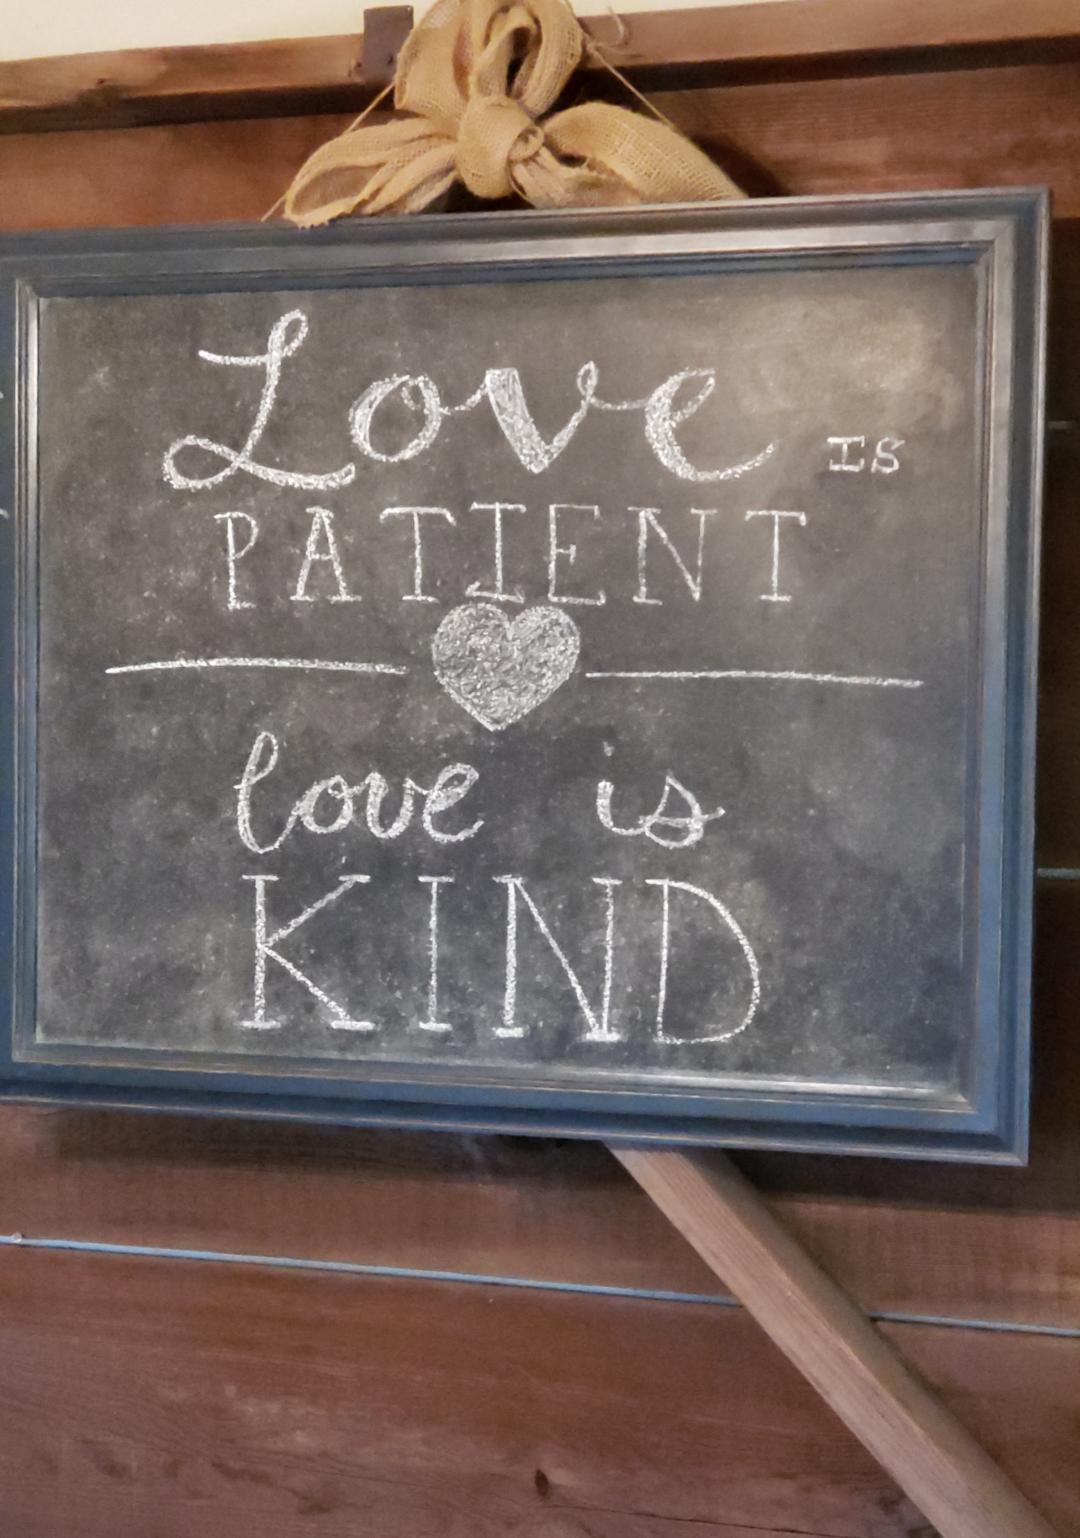 Love IS
PATIENT
love is
KIND